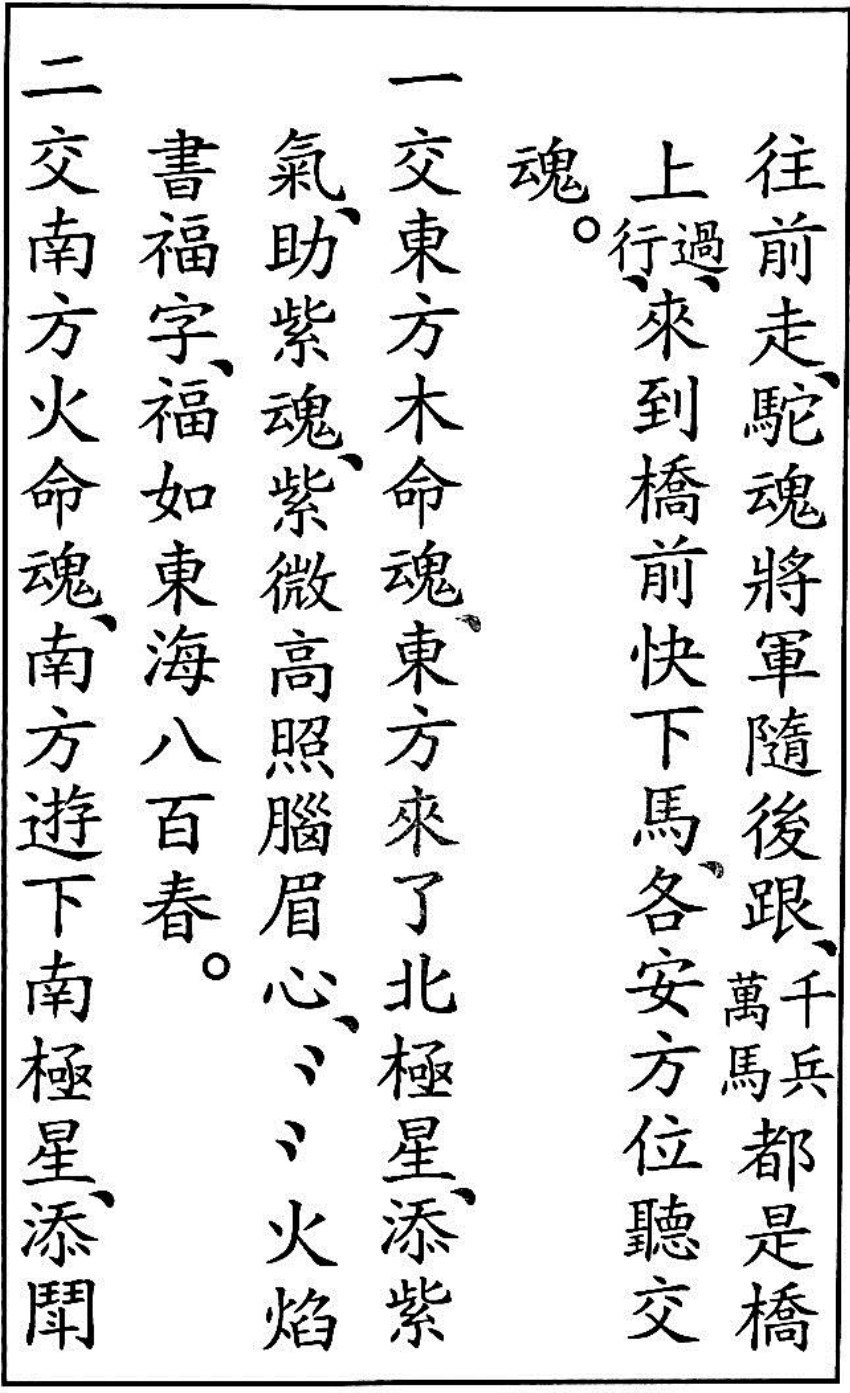 往前走、駝魂將軍隨後跟、千兵萬馬都是橋
上過、行、來到橋前快下馬、各安方位聽交
魂。
一交東方木命魂、東方來了北極星、添紫
氣、助紫魂、紫微高照腦眉心、〻〻火焰
書福字、福如東海八百春。
二交南方火命魂、南方遊下南極星、添鬪